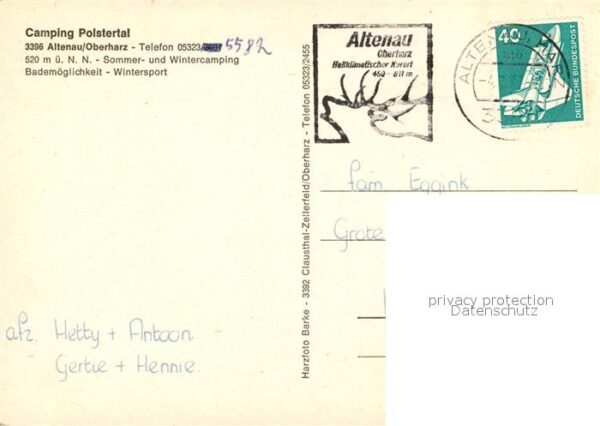 Camping Polstertal
3396 Altenau/Oberharz - Telefon 05323/ 5582
520 m ü. N. N. - Sommer- und Wintercamping
Bademöglichkeit - Wintersport
Altenau
Oberharz
Heilklimatischer Kurort
450 - 811 m
40
DEUTSCHE BUNDESPOST
Harzfoto Barke - 3392 Clausthal-Zellerfeld/Oberharz - Telefon 05323/2455
fam Eggink
Grote
privacy protection
Datenschutz
afz. Hetty + Antoon
Gertie + Hennie